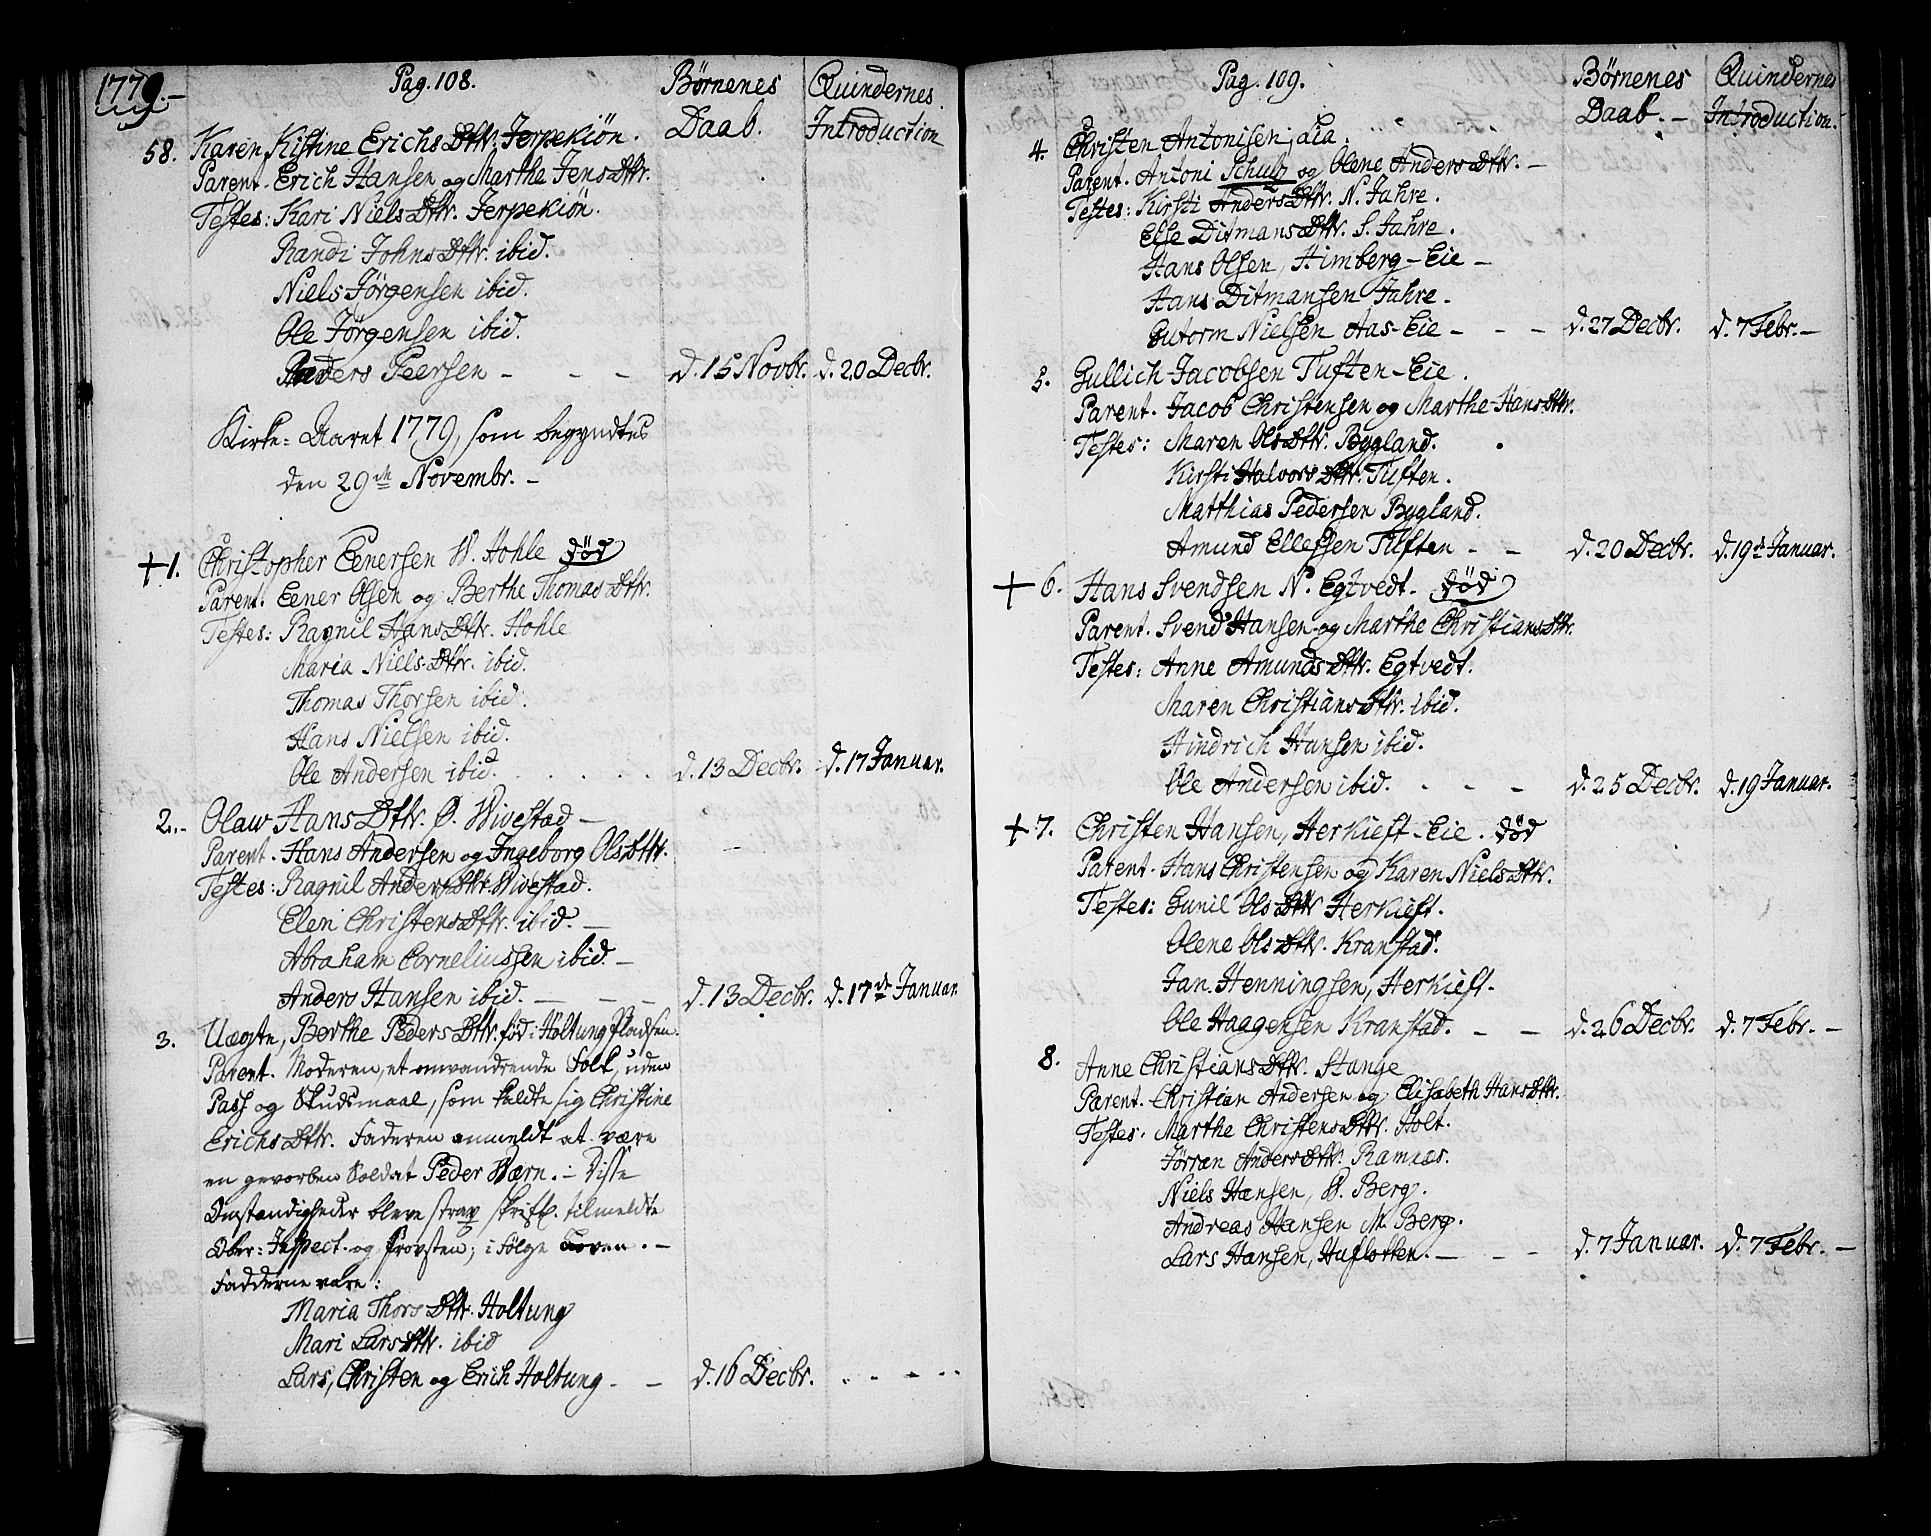 1779.-
Pag. 108.
Børnenes Daab.
Quindernes Introduction
58. Karen Kistine Erichs Dttr. Jerpekiön.
Parent. Erich Hansen og Marthe Jens Dttr.
Testes: Kari Niels Dttr. Jerpekiön.
Randi Johns Dttr. ibid.
Niels Jörgensen ibid.
Ole Jörgensen ibid.
Anders Peersen - - - d. 15 Novbr. d. 20 Decbr.
Kirke-Aaret 1779, som begyndtes
den 29de Novembr. -
+1. Christopher Eenersen W. Hohle død
Parent. Eener Olsen og Berthe Thomas Dttr.
Testes: Ragnil Hans Dttr. Hohle
Maria Niels Dttr. ibid.
Thomas Thorsen ibid.
Hans Nielsen ibid.
Ole Andersen ibid. . . . . . d. 13 Decbr. d. 17 Januar.
2.- Olaw Hans Dttr. Ø. Wivestad -
Parent. Hans Andersen og Ingeborg Ols Dttr. -
Testes: Ragnil Anders Dttr. Wivestad.
Eleni Christens Dttr. ibid. -
Abraham Corneliussen ibid. -
Anders Hansen ibid. - - - d. 13 Decbr. d. 17de Januar.
3. Uægte, Berthe Peders Dttr. fød i Holtung Pladsen.
Parent. Moderen, et omvandrende Folk, uden
Pass og Skudsmaal, som kaldte sig Christine
Erichs Dttr. Faderen anmeldt at være
en gevorben Soldat Peder Wærn. - Disse
Omstændigheder bleve strax skriftl. tilmeldte
Ober-Inspect. og Provsten; i Følge Loven. -
Fadderne vare:
Maria Thors Dttr. Holtung
Mari Lars Dttr. ibid
Lars, Christen og Erich Holtung - - d. 16 Decbr. . - - . .
Pag. 109.
Børnenes Daab. -
Quindernes Introduction.
4. Christen Antonisen, Lia.
Parent. Antoni Schulz og Olene Anders Dttr. -
Testes: Kirsti Anders Dttr. N. Jahre.
Else Ditmans Dttr. S. Jahre.
Hans Olsen, Himberg-Eie -
Hans Ditmansen Jahre.
Gutorm Nielsen Aas-Eie - - - d. 27 Decbr. d. 7 Febr. -
5. Gullich Jacobsen Tuften-Eie.
Parent. Jacob Christensen og Marthe Hans Dttr.
Testes: Maren Ols Dttr. Bygland.
Kirsti Halvors Dttr. Tuften.
Matthias Pedersen Bygland.
Amund Ellefsen Tuften - - d. 20 Decbr. d. 19de Januar.
+ 6. Hans Svendsen N. Egtvedt. død
Parent. Svend Hansen og Marthe Christians Dttr.
Testes: Anne Amunds Dttr. Egtvedt.
Maren Christians Dttr. ibid.
Hindrich Hansen ibid.
Ole Andersen ibid. . - - d. 25 Decbr. d. 19 Januar.
+ 7. Christen Hansen, Herkieft-Eie. død
Parent. Hans Christensen og Karen Niels Dttr.
Testes: Gunil Ols Dttr Herkieft.
Olene Ols Dttr. Kranstad.
Jan. Henningsen, Herkieft.
Ole Haagensen Kranstad. - - d. 26 Decbr. d. 7 Febr. -
8. Anne Christians Dttr. Stange
Parent. Christian Andersen og Elisabeth Hans Dttr.
Testes. Marthe Christens Dttr. Holt.
Jörran Anders Dttr. Ramnæs.
Niels Hansen, W. Berg.
Andreas Hansen M. Berg.
Lars Hansen, Huflotten. - - - d. 7 Januar. d. 7 Febr. -